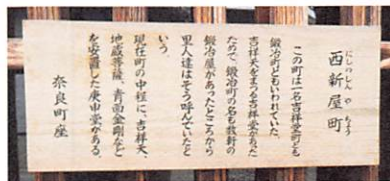 西新屋町
にしのしんやちょう
この町は一名吉祥堂町とも
鍛冶町ともいわれていた。
吉祥天をまつる吉祥堂があった
ためで、鍛冶町の名も数軒の
鍛冶屋があったところから
里人達はそう呼んでいたと
いう。
現在町の中程に、吉祥天、
地蔵菩薩、青面金剛など
を安置した庚申堂がある。
奈良町座